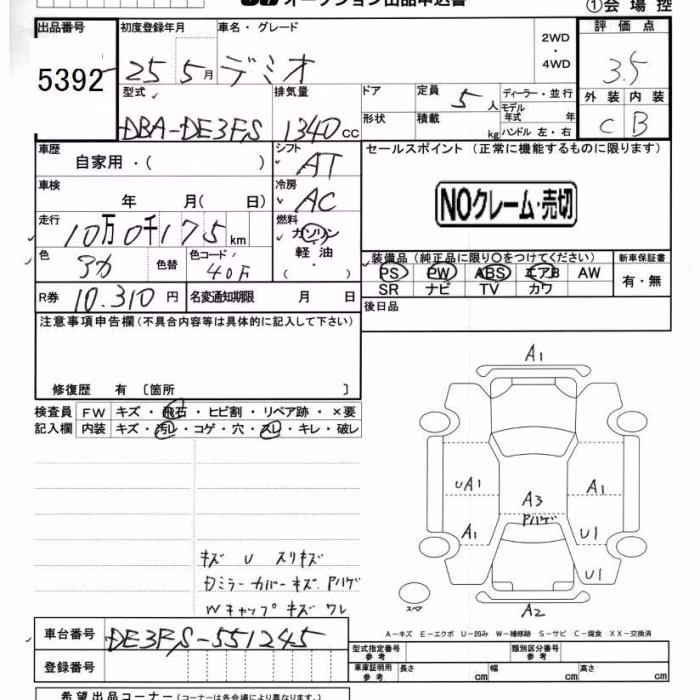 オークション出品申込書
①会場控
出品番号 初度登録年月 車名・グレード 2WD・4WD 評価点
5392 25 5月 デミオ 3.5
型式 排気量 ドア 定員 5人 ディーラー・並行 外装 内装
DBA-DE3FS 1340cc 形状 積載 kg モデル年式 年 C B
ハンドル 左・右
車歴 シフト セールスポイント(正常に機能するものに限ります)
自家用・( ) AT
車検 冷房
年 月( 日) AC NOクレーム・売切
走行 燃料
10万0千175km ガソリン
軽油
色 色替 色コード ・( ) 装備品(純正品に限り〇をつけてください) 新車保証書
アカ 40F PS PW ABS エアB AW 有・無
SR ナビ TV カワ
R券 10.310円 名変通知期限 月 日 後日品
注意事項申告欄(不具合内容等は具体的に記入して下さい)
修復歴 有 〔箇所 〕
検査員 FW キズ・飛石・ヒビ割・リペア跡・×要
記入欄 内装 キズ・汚レ・コゲ・穴・スレ・キレ・破レ
A1
UA1 A1
A3
Pハゲ
A1 U1
U1
スペア A2
キズ U スリキズ
ミラーカバーキズ.Pハゲ
Wキャップキズ ワレ
A-キズ E-エクボ U-凹み W-補修跡 S-サビ C-腐食 XX-交換済
車台番号 DE3FS-551245
型式指定番号 参考 類別区分番号 参考
登録番号 車庫証明用 参考 長さ cm 幅 cm 高さ cm
希望出品コーナー(コーナーは各会場により異なります。)